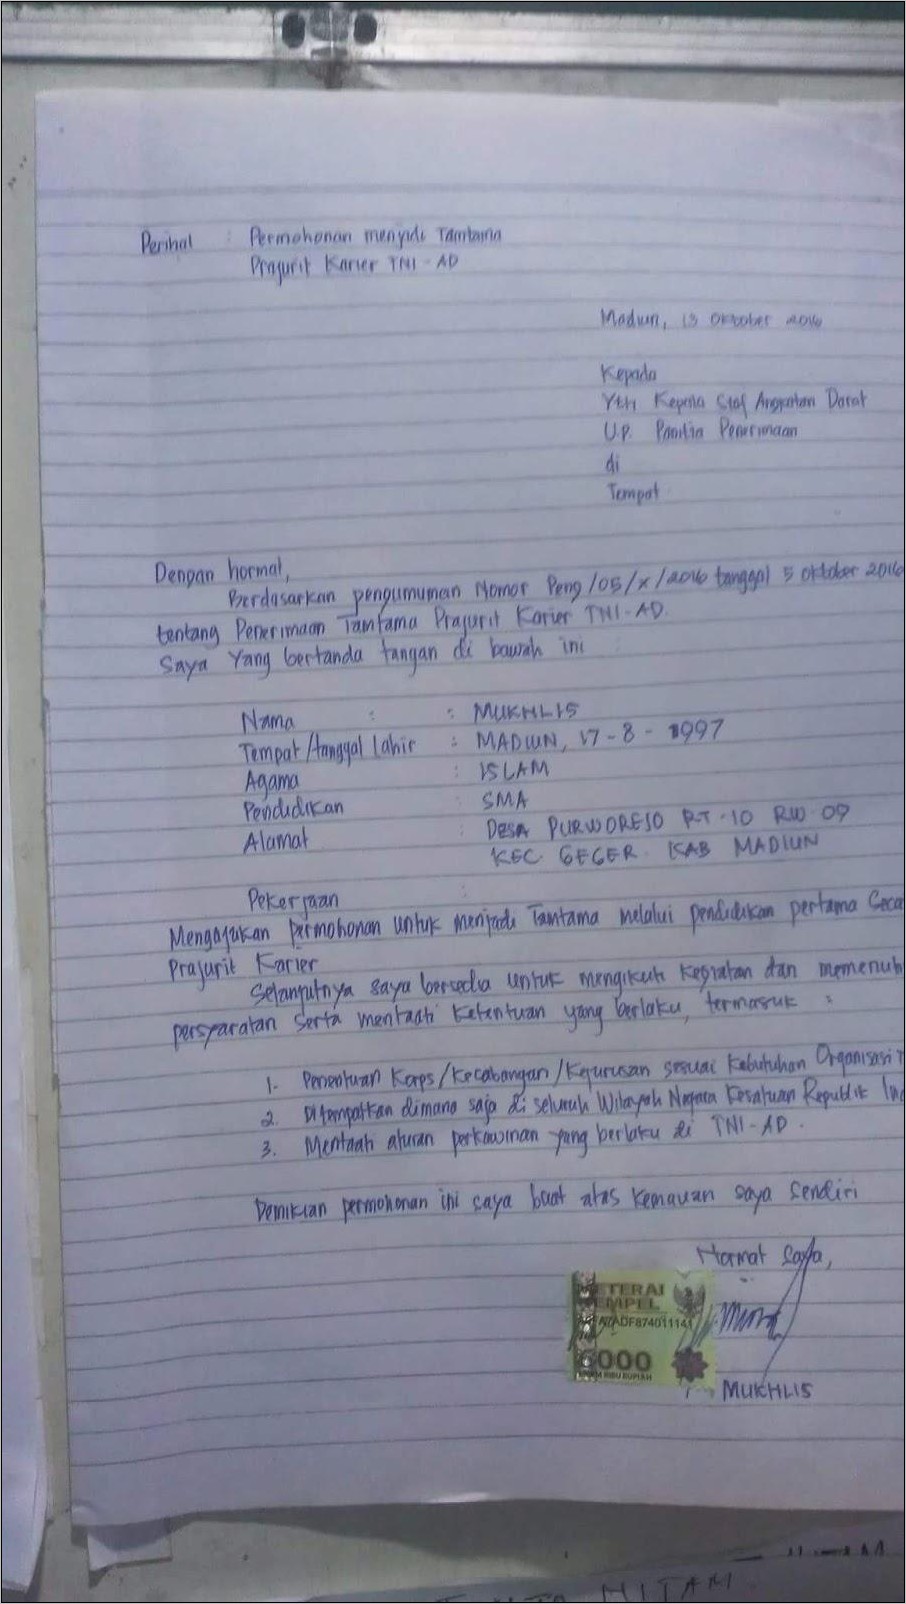 Perihal : Permohonan menjadi Tamtama
Prajurit Karier TNI-AD
Madiun, 13 Oktober 2016
Kepada
Yth Kepala Staf Angkatan Darat
U.P. Panitia Penerimaan
di
Tempat
Dengan hormat,
Berdasarkan pengumuman Nomor Peng/05/X/2016 tanggal 5 Oktober 2016
tentang Penerimaan Tamtama Prajurit Karier TNI-AD.
Saya Yang bertanda tangan di bawah ini
Nama : : MUKHLIS
Tempat/tanggal lahir : MADIUN, 17-8-1997
Agama : ISLAM
Pendidikan : SMA
Alamat : DESA PURWOREJO RT.10 RW.09
KEC GEGER. KAB MADIUN
Pekerjaan :
Mengajukan permohonan untuk menjadi Tamtama melalui pendidikan pertama Seca
Prajurit Karier
Selanjutnya saya bersedia untuk mengikuti kegiatan dan memenuh
persyaratan serta mentaati ketentuan yang berlaku, termasuk :
1. Penentuan Korps/Kecabangan/Kejurusan sesuai kebutuhan Organisasi T
2. Ditempatkan dimana saja di seluruh Wilayah Negara Kesatuan Republik In
3. Mentaati aturan perkawinan yang berlaku di TNI-AD.
Demikian permohonan ini saya buat atas kemauan saya sendiri
Hormat Saya,
METERAI
TEMPEL
ADF874011141
6000
ENAM RIBU RUPIAH
MUKHLIS
HITAM